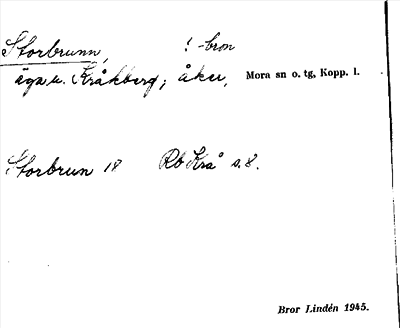 Storbrunn, ! -bron
ägor u. Kråkberg; åker, Mora sn o. tg, Kopp. l.
Storbrun 18 Rb Krå s. 8.
Bror Lindén 1945.